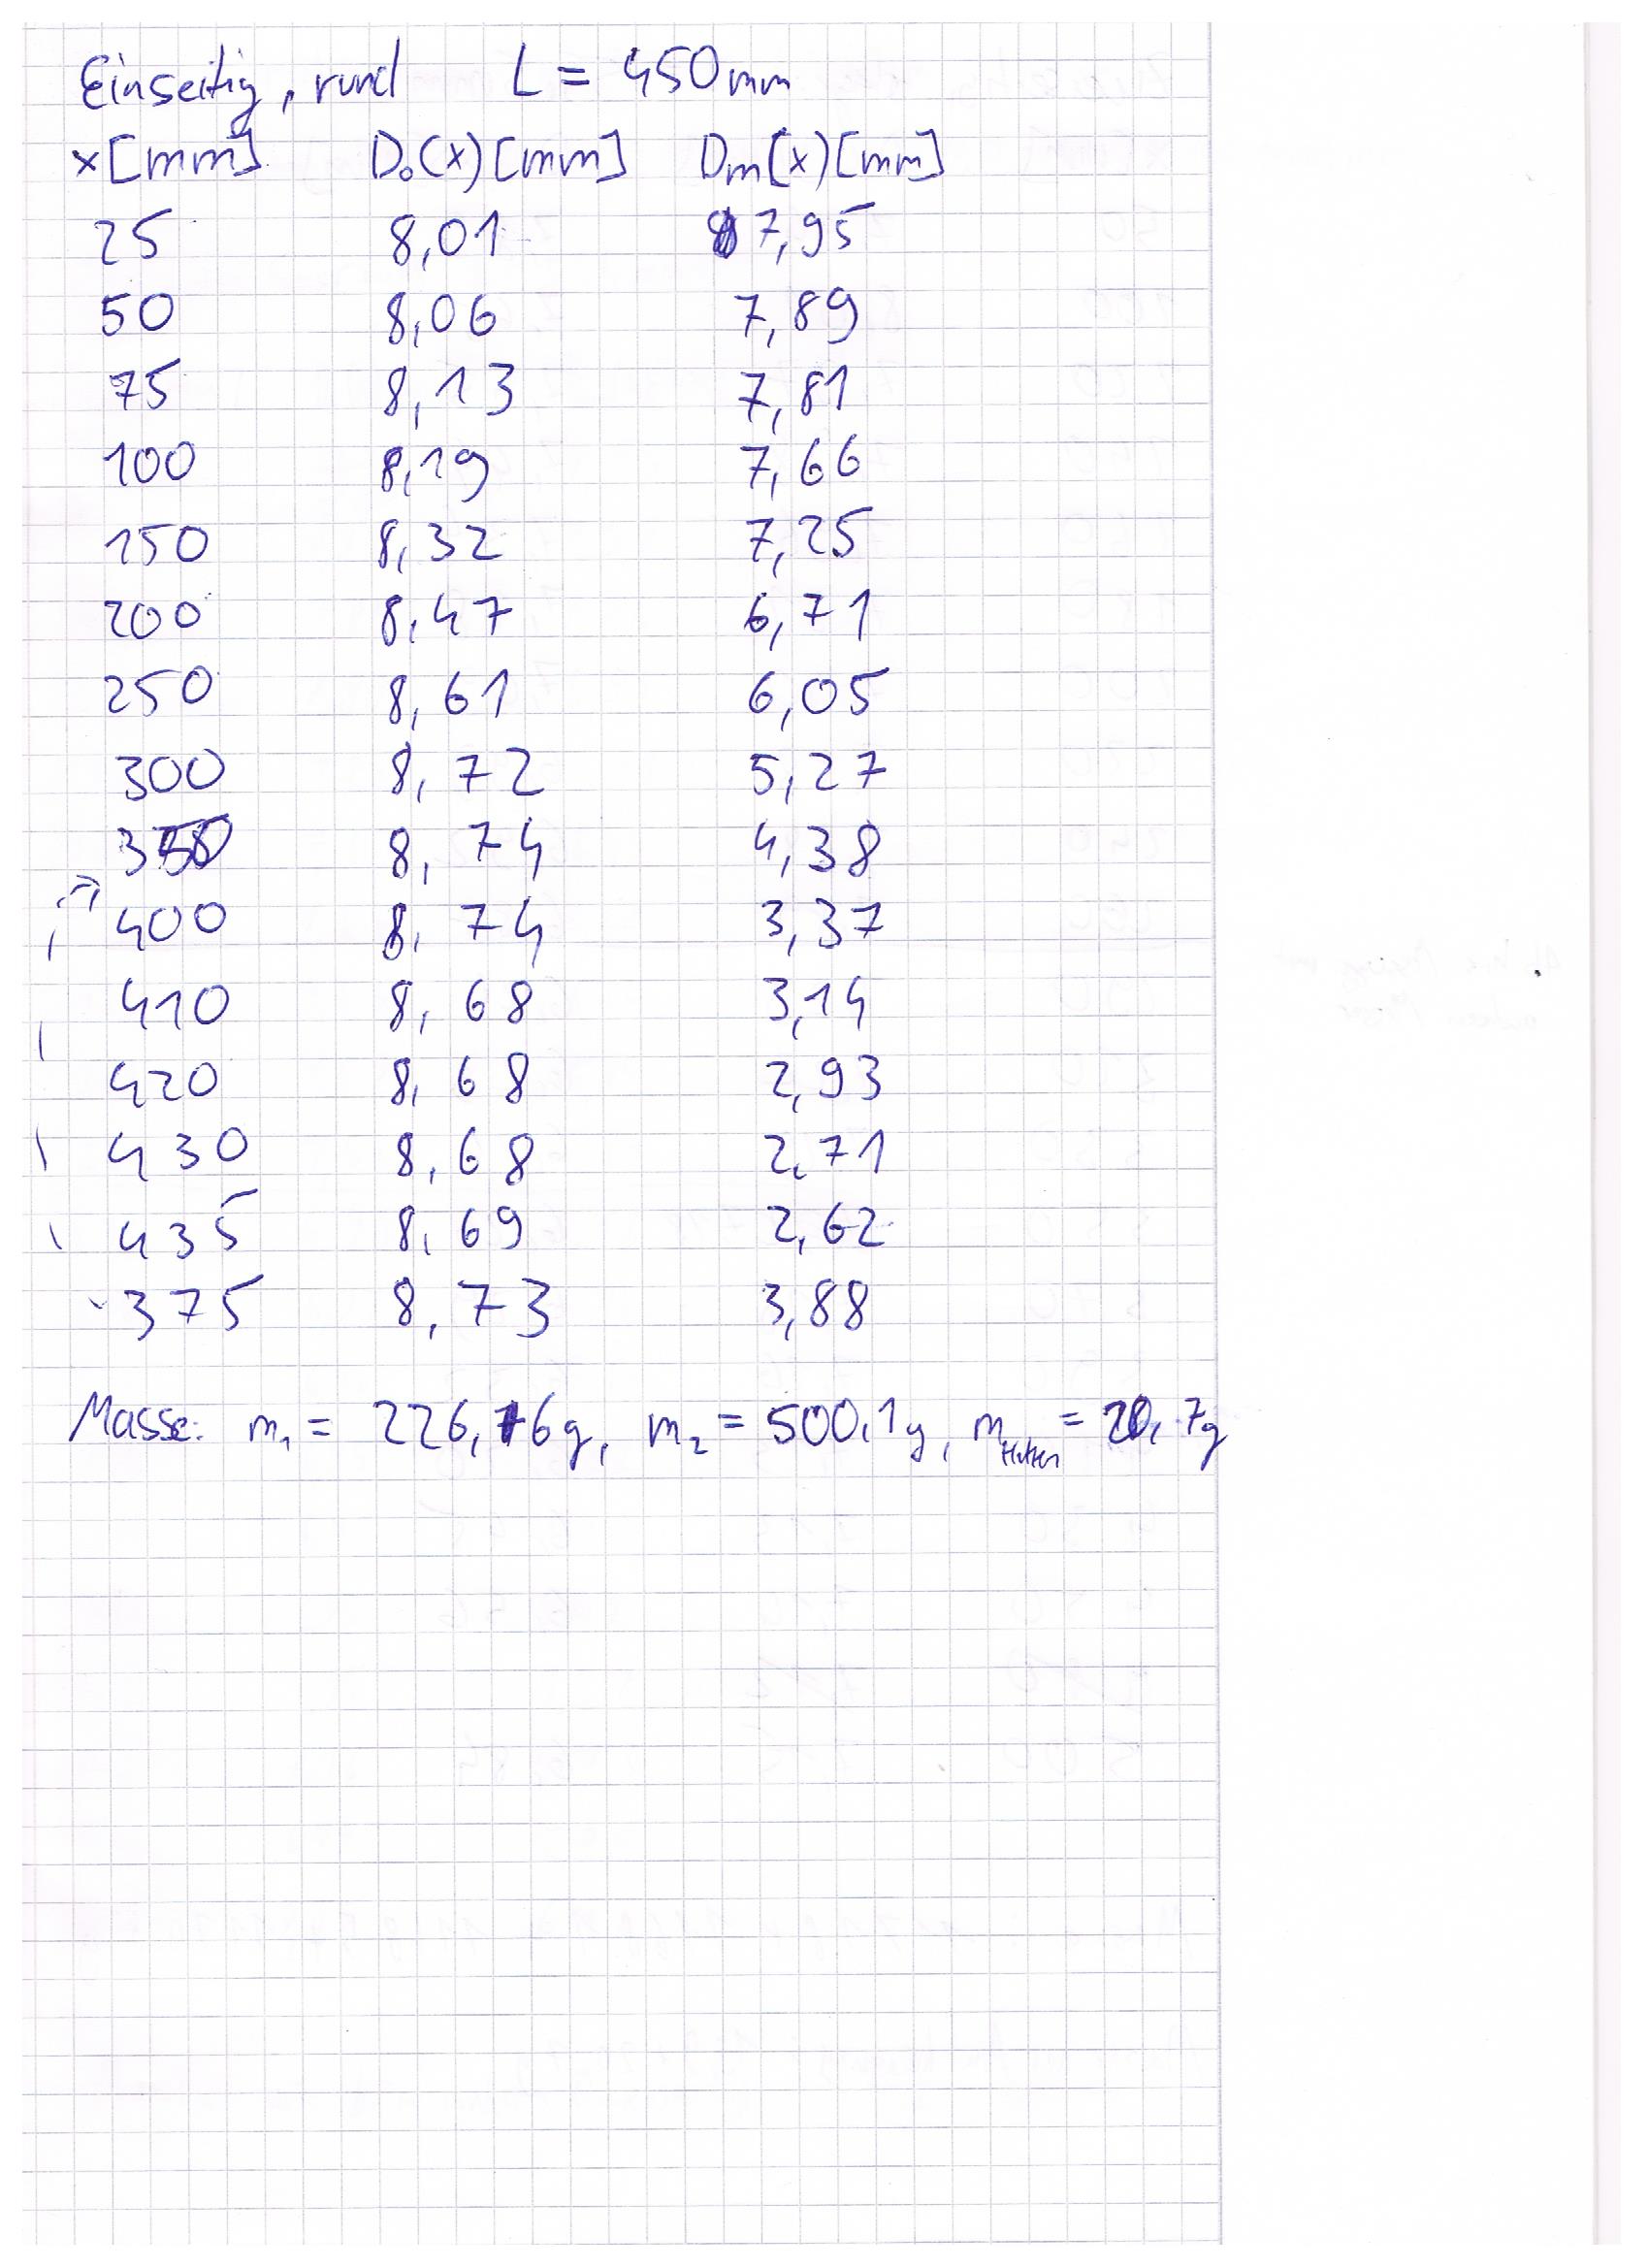 Einseitig, rund L = 450mm
x[mm] D₀(x)[mm] Dm(x)[mm]
25 8,01 7,95
50 8,06 7,89
75 8,13 7,81
100 8,19 7,66
150 8,32 7,25
200 8,47 6,71
250 8,61 6,05
300 8,72 5,27
350 8,74 4,38
400 8,74 3,37
410 8,68 3,14
420 8,68 2,93
430 8,68 2,71
435 8,69 2,62
375 8,73 3,88
Masse: m₁ = 226, 6g, m₂ = 500,1g, m = ,7g